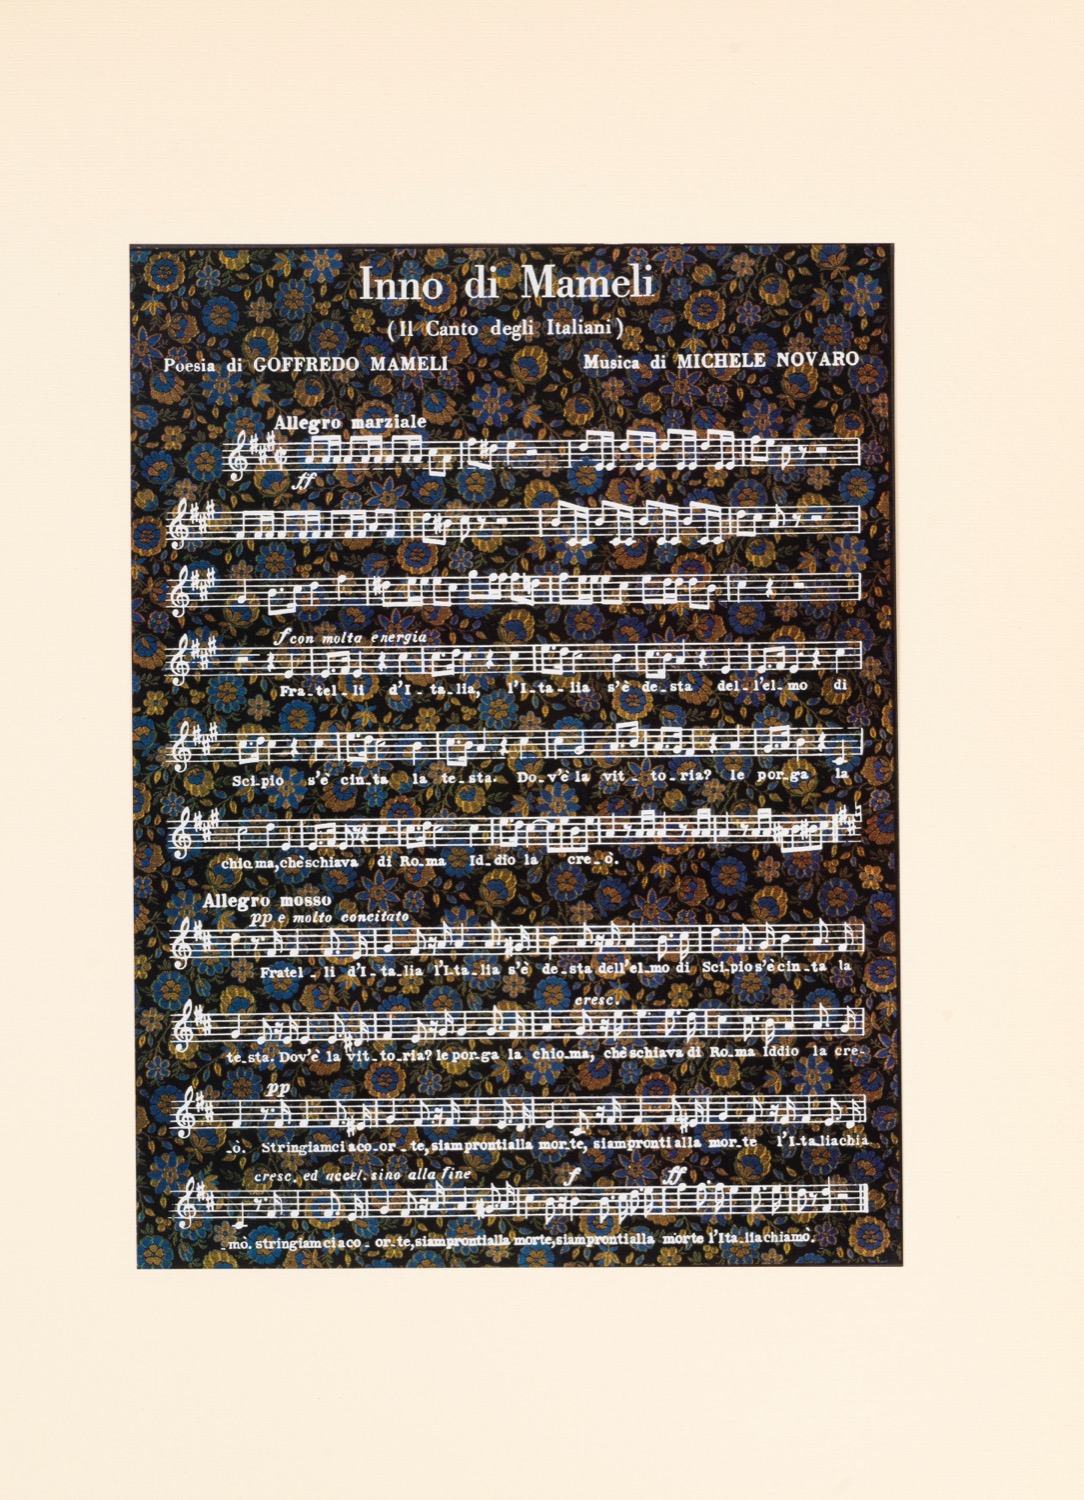 Inno di Mameli
(Il Canto degli Italiani)
Poesia di GOFFREDO MAMELI
Musica di MICHELE NOVARO
Allegro marziale
ff
f con molta energia
Fra-tel-li d'I-ta-lia, l'I-ta-lia s'è de-sta del-l'el-mo di
Sci-pio s'è cin-ta la te-sta. Do-v'è la vit-to-ria? le por-ga la
chioma, chè schiava di Ro-ma Id-dio la cre-ò.
Allegro mosso
pp e molto concitato
Fratel-li d'I-ta-lia l'I-ta-lia s'è de-sta dell'el-mo di Sci-pio s'è cin-ta la
cresc.
te-sta. Dov'è la vit-to-ria? le por-ga la chio-ma, chè schiava di Ro-ma Iddio la cre-
pp
-ò. Stringiamci a co-or-te, siam pronti alla mor-te, siam pronti alla mor-te l'I-ta-lia chia
cresc. ed accel. sino alla fine
f ff
-mò. stringiamci a co-or-te, siam pronti alla morte, siam pronti alla morte l'Ita-lia chiamò.